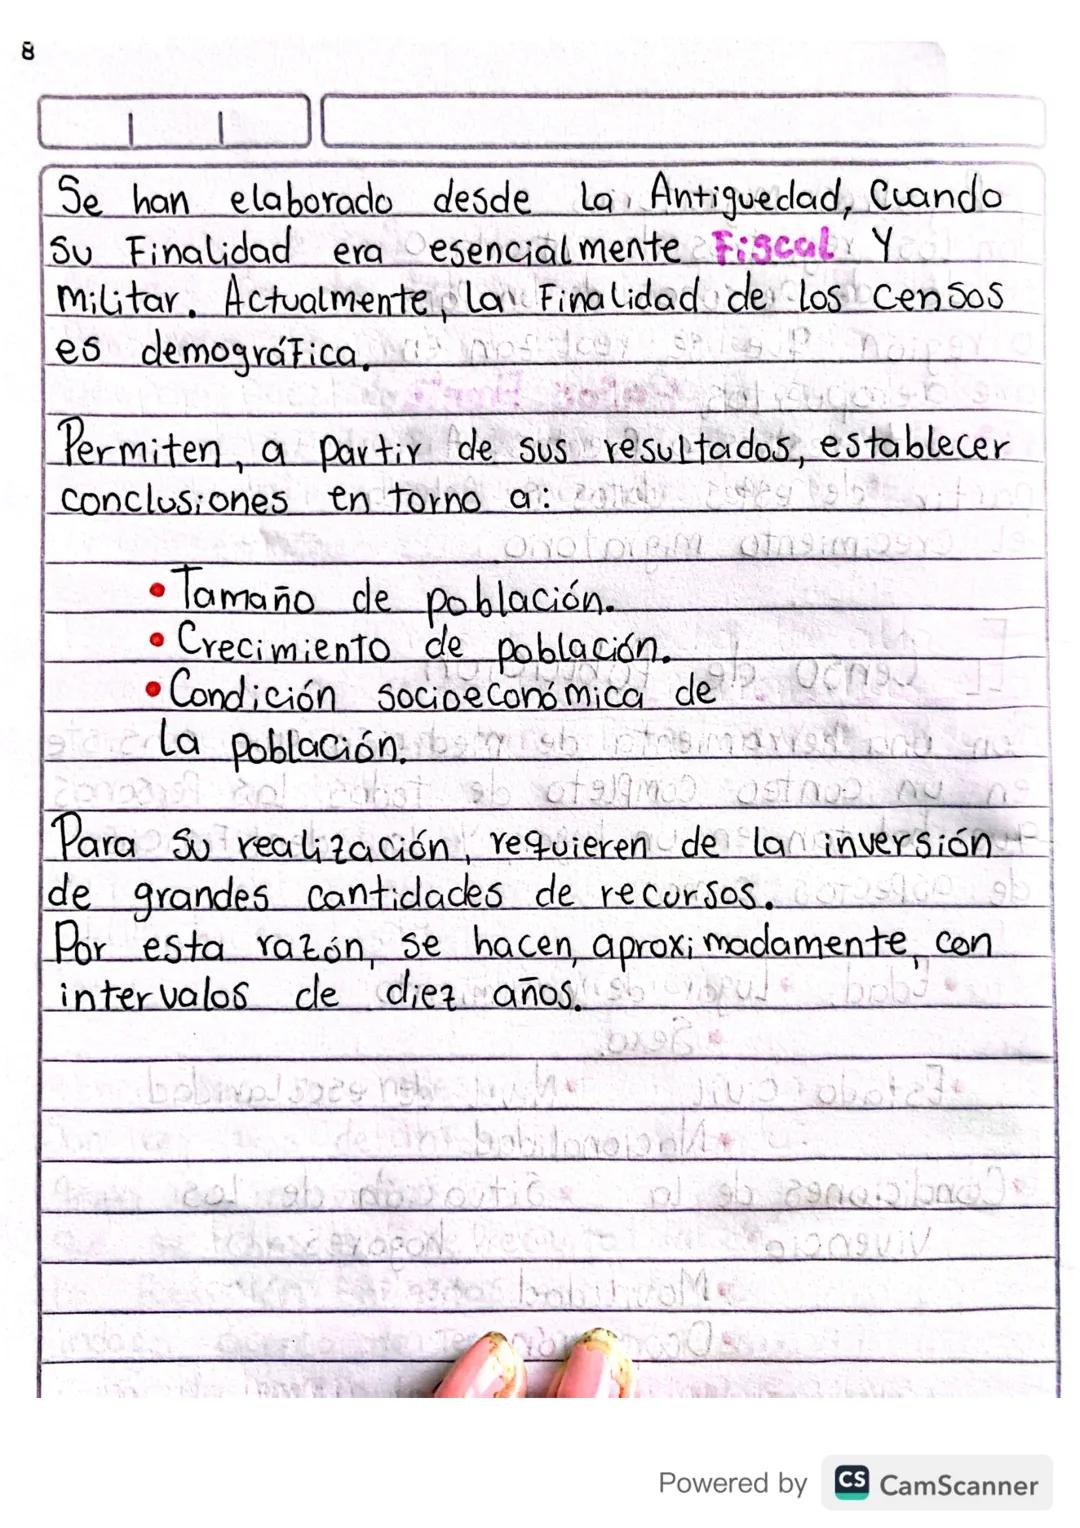 8
Se han elaborado desde la Antiguedad, Cuando
su Finalidad era esencialmente Fiscal Y
militar. Actualmente, la Finalidad de los censos
es demográfica.
Permiten, a partir de sus resultados, establecer
conclusiones en torno a:
• Tamaño de población.
• Crecimiento de población.
• Condición socioeconómica de
la población.
Para su realización, requieren de la inversión
de grandes cantidades de recursos.
Por esta razón, se hacen, aproximadamente, con
intervalos de diez años.
Powered by CS CamScanner